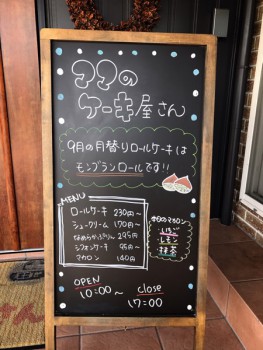 ママの
ケーキ屋さん
9月の月替りロールケーキは
モンブランロールです!!
MENU
ロールケーキ 230円〜
シュークリーム 170円〜
なめらかぷりん 295円
シフォンケーキ 95円〜
マカロン 140円
今日のマカロン
いちご
レモン
抹茶
OPEN
10:00〜
Close
17:00